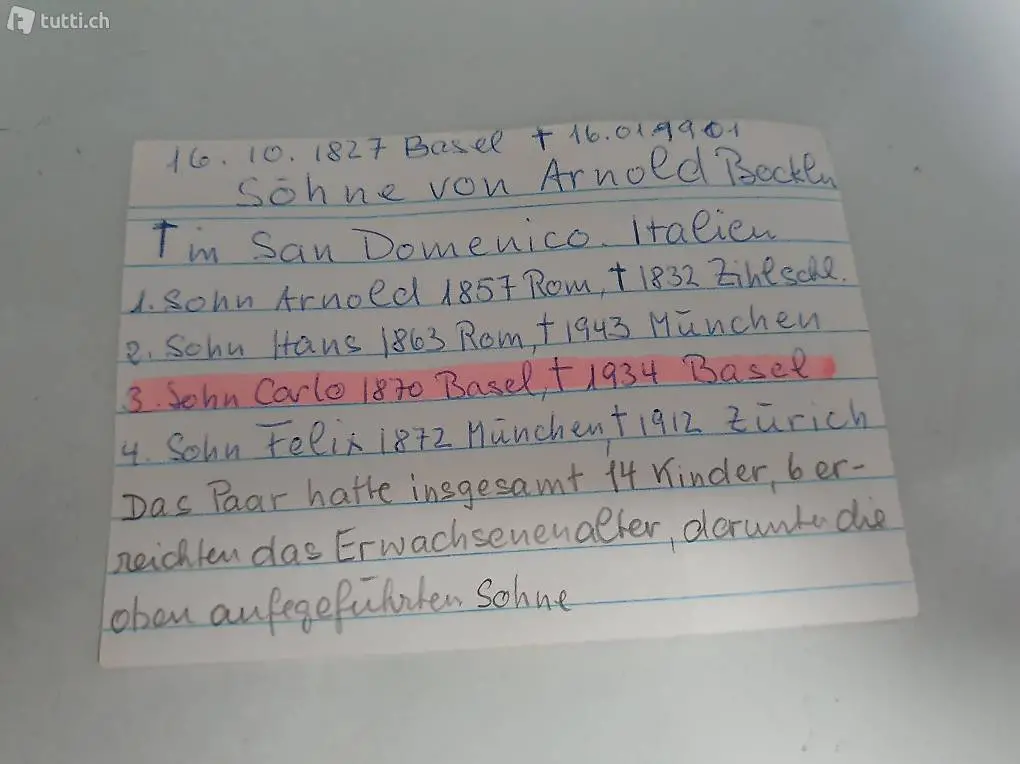 tutti.ch
16.10.1827 Basel + 16.01.1901
Söhne von Arnold Böcklin
† in San Domenico. Italien
1. Sohn Arnold 1857 Rom, † 1832 Zihlschl.
2. Sohn Hans 1863 Rom, † 1943 München
3. Sohn Carlo 1870 Basel, † 1934 Basel
4. Sohn Felix 1872 München, † 1912 Zürich
Das Paar hatte insgesamt 14 Kinder, 6 er-
reichten das Erwachsenenalter, darunter die
oben aufegeführten Sohne